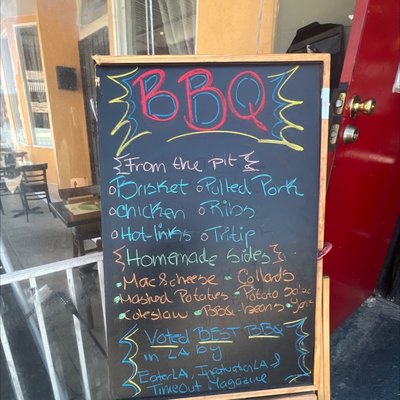 BBQ
From the pit
Brisket Pulled Pork
Chicken Ribs
Hot-links Tritip
Homemade Sides
Mac & cheese - Collards
Mashed Potatoes - Potato Salad
Coleslaw - BBQ-beans - Yams
Voted BEST BBQ
in LA by
Eater LA, Infatuation LA &
TimeOut Magazine